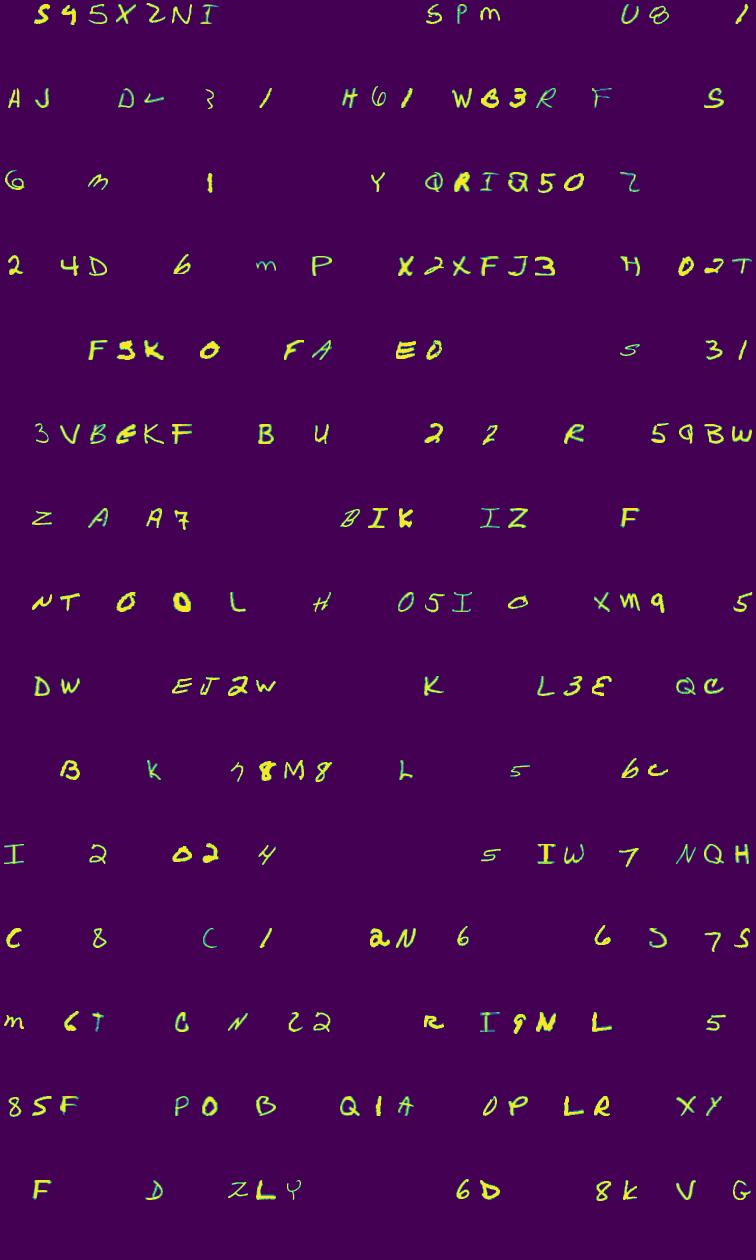 S45X2NI SPM U8 1
AJ DL 3 1 H61 WB3R F S
6 M 1 Y QRIQ50 Z
2 4D 6 M P X2XFJ3 H 02T
FSK 0 FA E0 S 31
3VBEKF B U 2 2 R 5QBW
Z A A7 BIK IZ F
NT 0 0 L H 05I 0 XM9 5
DW EJ2W K L3E QC
B K 78M8 L 5 6C
I 2 024 4 5 IW 7 NQH
C 8 C 1 2N 6 6 J 7S
M 6T C N 22 R I9N L 5
85F P0 B Q1A 0P LR XY
F D ZLY 6D 8K V G